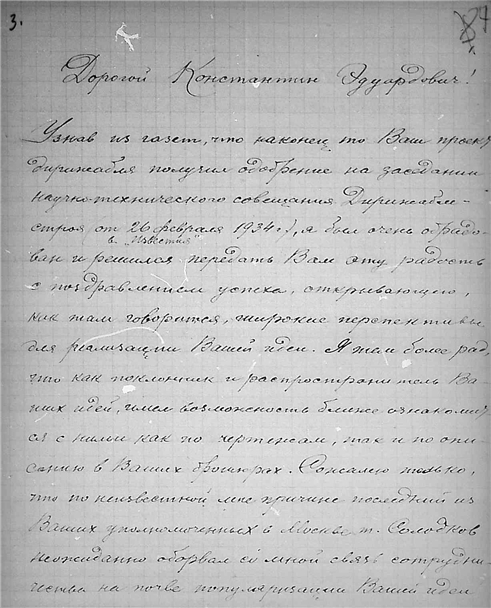 3.
Дорогой Константин Эдуардович!
Узнав из газет, что наконец то Ваш проект
дирижабля получил одобрение на заседании
научно-технического совещания Дирижабле-
строя от 26 февраля 1934 г), я был очень обрадо-
в „Известия"
ван и решился передать Вам эту радость
с поздравлением успеха, открывающего,
как там говорится, широкие перспективы
для реализации Вашей идеи. Я тем более рад,
что как поклонник и распространитель Ва-
ших идей, имел возможность ближе ознакомит
ся с ними как по чертежам, так и по опи-
санию в Ваших брошюрах. Сожалею только,
что по неизвестной мне причине последний из
Ваших уполномоченных в Москве т. Солодков
неожиданно оборвал со мной связь сотрудни-
чества на почве популяризации Вашей идеи